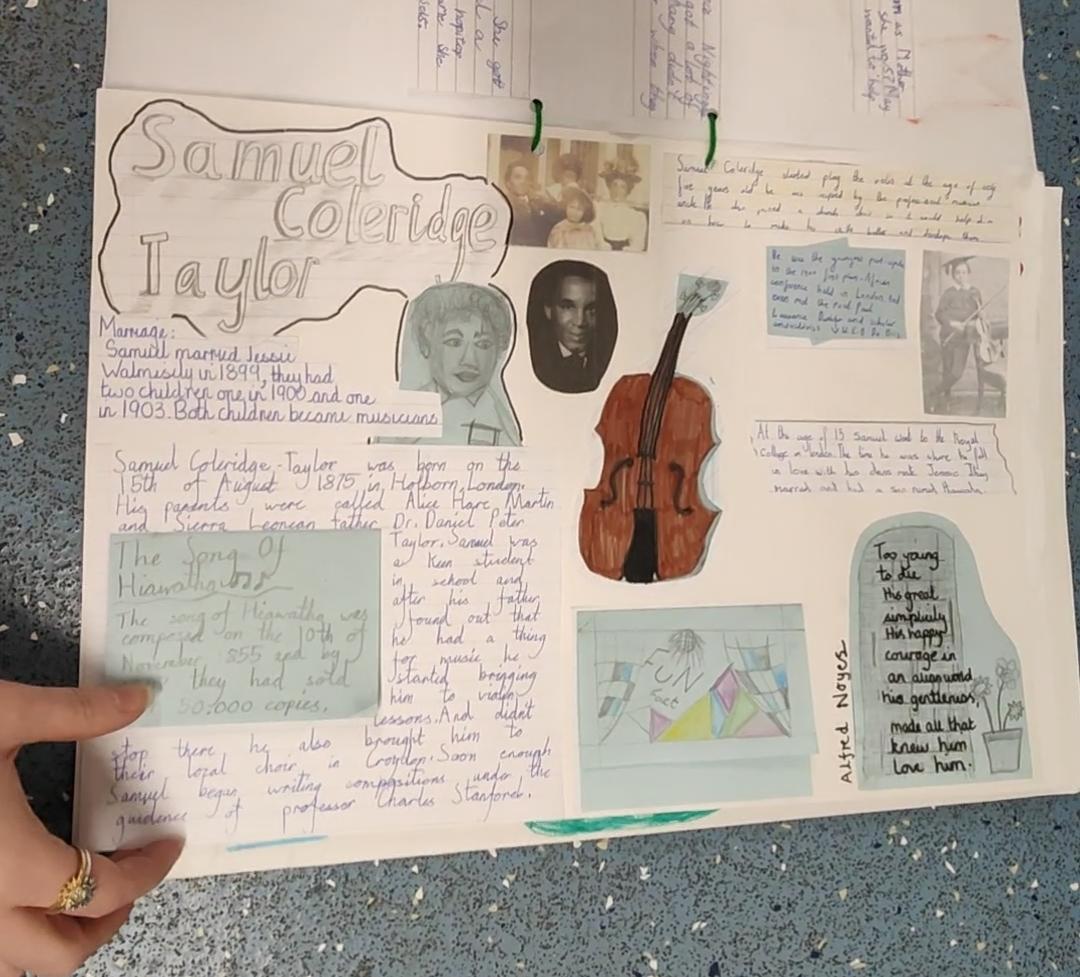 Samuel
Coleridge
Taylor
Marriage:
Samuel married Jessie
Walmisily in 1899, they had
two children one in 1900 and one
in 1903. Both children became musicians
Samuel Coleridge-Taylor was born on the
15th of August 1875 in Holborn, London.
His parents were called Alice Hare Martin
and Sierra Leonean father Dr. Daniel Peter
Taylor. Samuel was
a keen student
in school and
after his father
found out that
he had a thing
for music he
started bringing
him to violin
lessons. And didn't
stop there, he also brought him to
their local choir in Croydon. Soon enough
Samuel began writing compositions under the
guidence of professor Charles Stanford.
The Song Of
Hiawatha
The song of Hiawatha was
composed on the 10th of
November, 855 and by
they had sold
50.000 copies.
Samuel Coleridge started play the violin at the age of only
five years old he was inspired by the professional
would help him
on how to make his better and develope them
He was the youngest
in the 1900 first pan-African
conference held in London had
even met the poet Paul
Laurence Dunbar and scholar
At the age of 15 Samuel went to the Royal
College in London. The time he was where he fell
in love with his class mate Jessie. They
married and had a son named Hiawatha.
FUN
fact
Alfred Noyes
Too young
to die
His great
simplicity
His happy
courage in
an alien world
his gentleness,
made all that
knew him
love him.